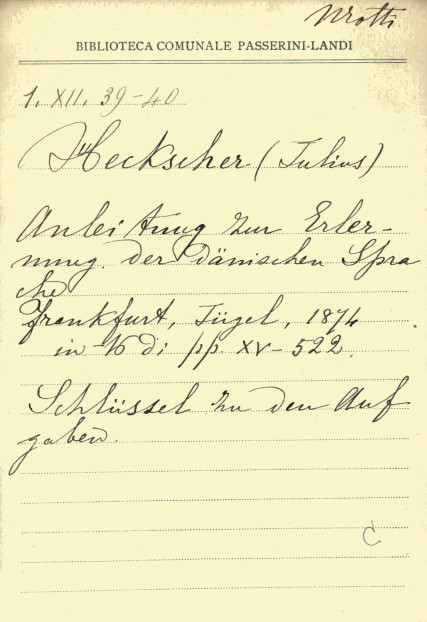 Nrotti
BIBLIOTECA COMUNALE PASSERINI-LANDI
1. XII. 39-40
Heckscher (Julius)
Anleitung zur Erler-
nung. der Dänischen Spra
che
Frankfurt, Jügel, 1874
in 16 di pp. XV-522.
Schlüssel zu den Auf
gaben.
C